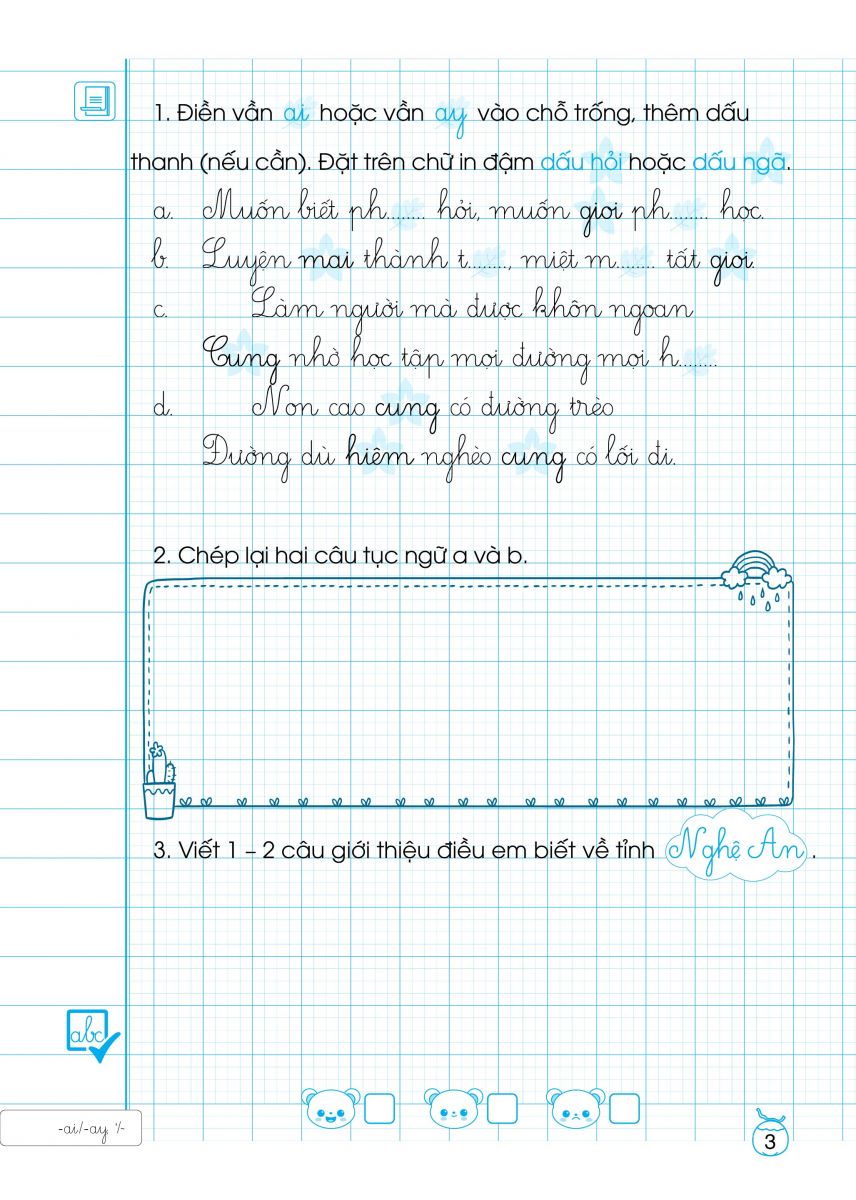 1. Điền vần ai hoặc vần ay vào chỗ trống, thêm dấu
thanh (nếu cần). Đặt trên chữ in đậm dấu hỏi hoặc dấu ngã.
a. Muốn biết ph........ hỏi, muốn gioi ph........ học.
b. Luyện mai thành t........, miệt m........ tất gioi.
c. Làm người mà được khôn ngoan
Cung nhờ học tập mọi đường mọi h........
d. Non cao cung có đường trèo
Đường dù hiêm nghèo cung có lối đi.
2. Chép lại hai câu tục ngữ a và b.
3. Viết 1 – 2 câu giới thiệu điều em biết về tỉnh Nghệ An.
abc
-ai/-ay, ̉/~
3